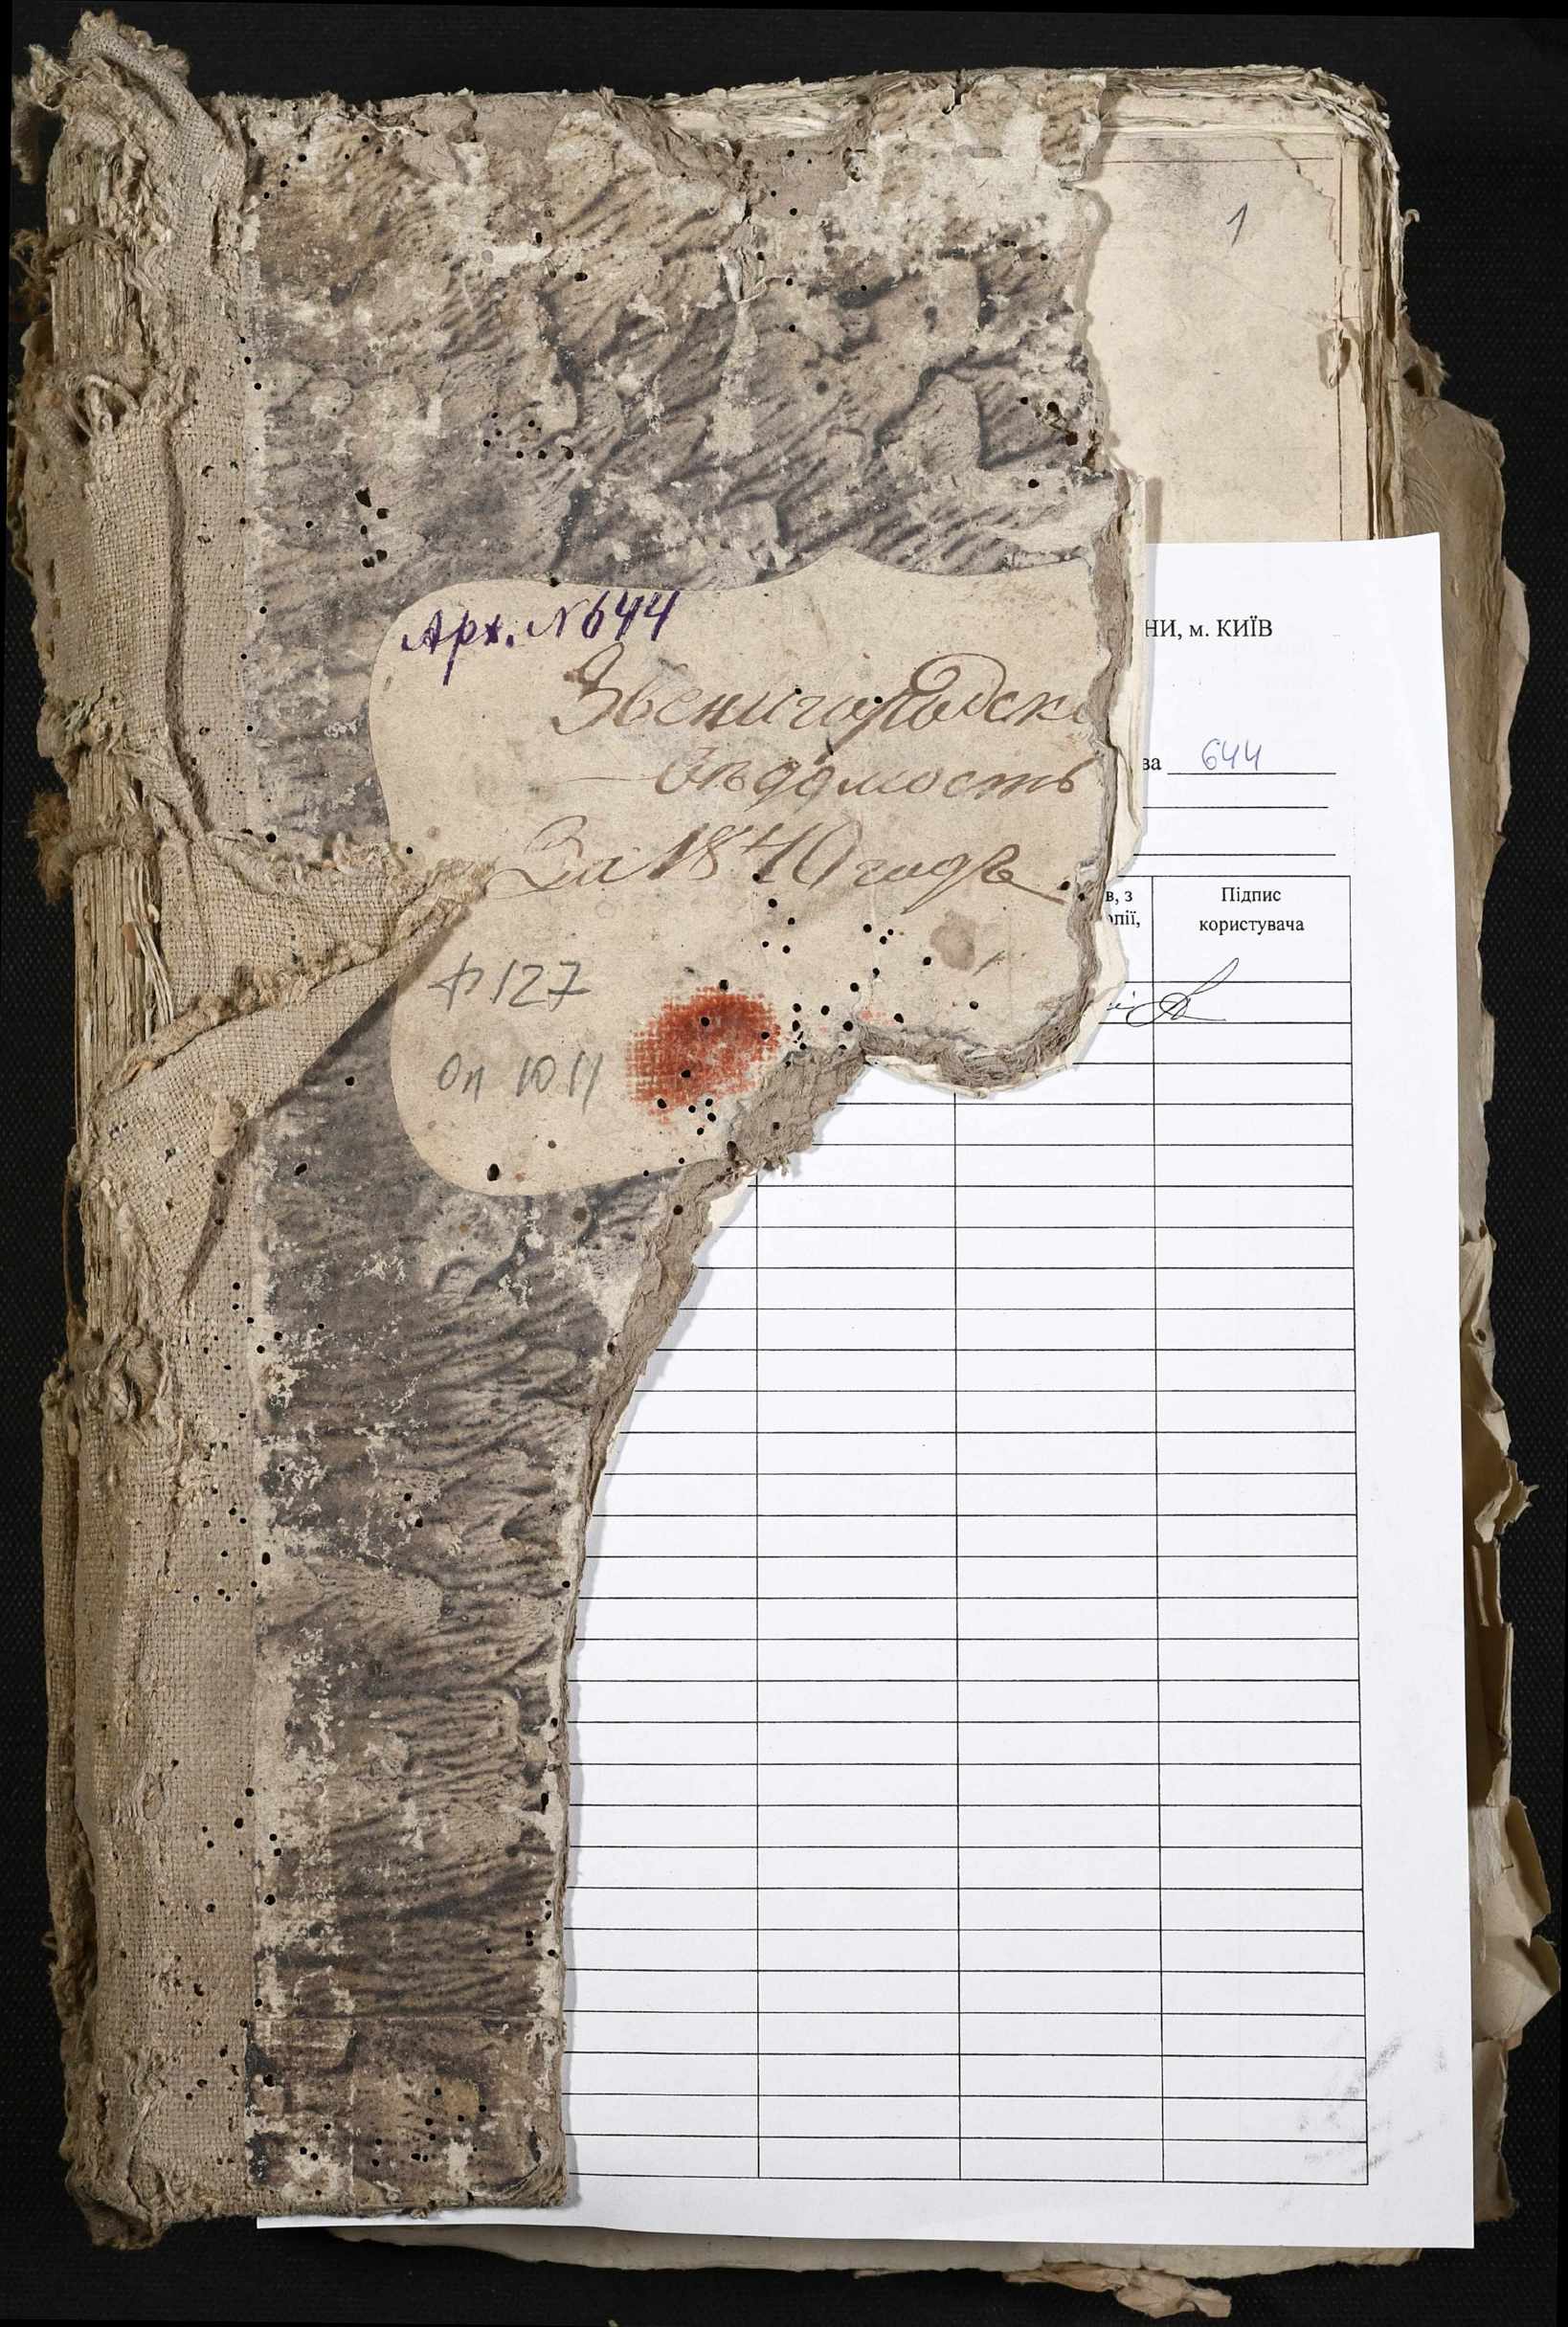 1
Арх. №644
Звенигородск
Вѣдомость
За 1840 годъ
ф 127
Оп 1011
НИ, м. КИЇВ
ва 644
в, з
опії,
Підпис
користувача